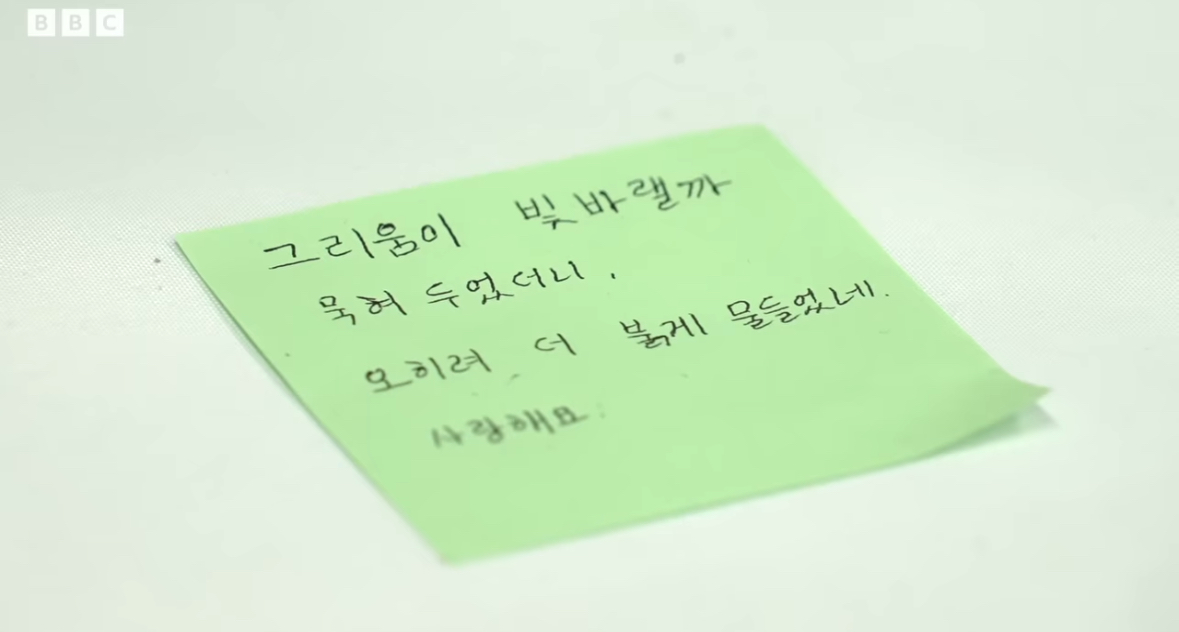 BBC
그리움이 빛바랠까
묵혀 두었더니,
오히려 더 붉게 물들었네.
사랑해요.